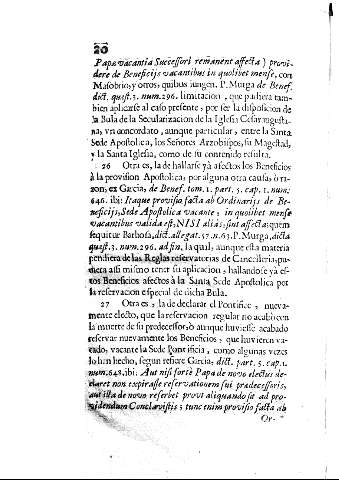 20
Papæ vacantia Successori remanent affecta) provi-
dere de Beneficijs vacantibus in quolibet mense, con
Masobrio, y otros, quibus iungen. P. Murga de Benef.
dict. quæst. 3. num. 296. limitacion, que pudiera tam-
bien aplicarse al caso presente, por ser la disposicion de
la Bula de la Secularizacion de la Iglesia Cesaragusta-
na, vn concordato, aunque particular, entre la Santa
Sede Apostolica, los Señores Arzobispos, su Magestad,
y la Santa Iglesia, como de su contenido resulta.
26 Otra es, la de hallarse yà afectos los Beneficios
à la provision Apostolica, por alguna otra causa, ò ra-
zon, ex Garcia, de Benef. tom. 1. part. 5. cap. 1. num.
646. ibi: Itaque provisio facta ab Ordinarijs de Be-
neficijs, Sede Apostolica vacante, in quolibet mense
vacantibus valida est, NISI aliàs, sint affecta: quem
sequitur Barbosa, dict. allegat. 57. n. 63. P. Murga, dicta
quæst. 3. num. 296. ad fin, la qual, aunque esta materia
pendiera de las Reglas reservatorias de Cancelleria, pu-
diera assi mismo tener su aplicacion, hallandose yà es-
tos Beneficios afectos à la Santa Sede Apostolica por
la reservacion especial de dicha Bula.
27 Otra es, la de declarar el Pontifice, nueva-
mente electo, que la reservacion regular no acabò con
la muerte de su predecessor, ò aunque huviesse acabado
reservar nuevamente los Beneficios, que huvieren va-
cado, vacante la Sede Pontificia, como algunas vezes
lo han hecho, segun refiere Garcia, dict. part. 5. cap. 1.
num. 648. ibi: Aut nisi fortè Papa de novo electus de-
claret non expirasse reservationem sui predecessoris,
aut illa de novo reserbet provi aliquando sit ad pro-
videndum Conclavistis; tunc enim provisio facta ab
Or-